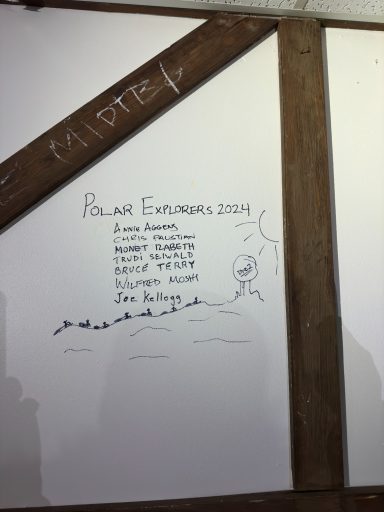 POLAR EXPLORERS 2024
ANNIE AGGENS
CHRIS FAUSTIAN
MONET IZABETH
TRUDI SEIWALD
BRUCE TERRY
WILFRED MOSHI
Joe Kellogg